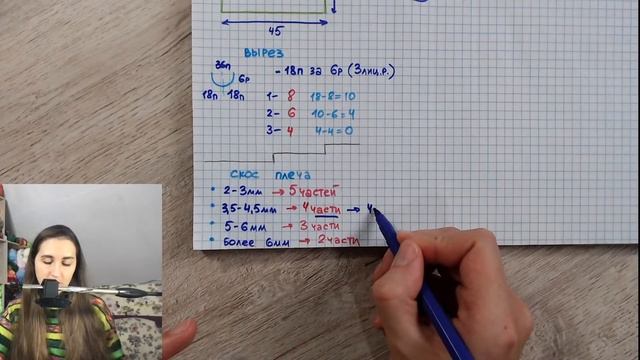 45
вырез
36п
6р
18п 18п
- 18п за 6р (3лиц.р.)
1- 8 18-8=10
2- 6 10-6=4
3- 4 4-4=0
скос плеча
• 2-3мм → 5 частей
• 3,5-4,5мм → 4 части → 4
• 5-6мм → 3 части
• более 6мм → 2 части